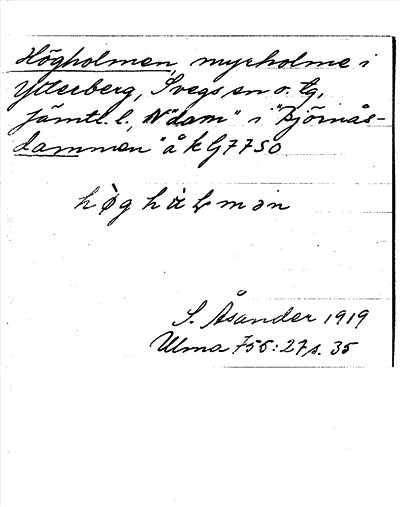 Högholmen, myrholme i
Ytterberg, Svegs sn o. tg,
Jämtl. l., N "dam" i "Björnås-
dammen" å k G7750
S. Åsander 1919
Ulma 756:27 s. 35